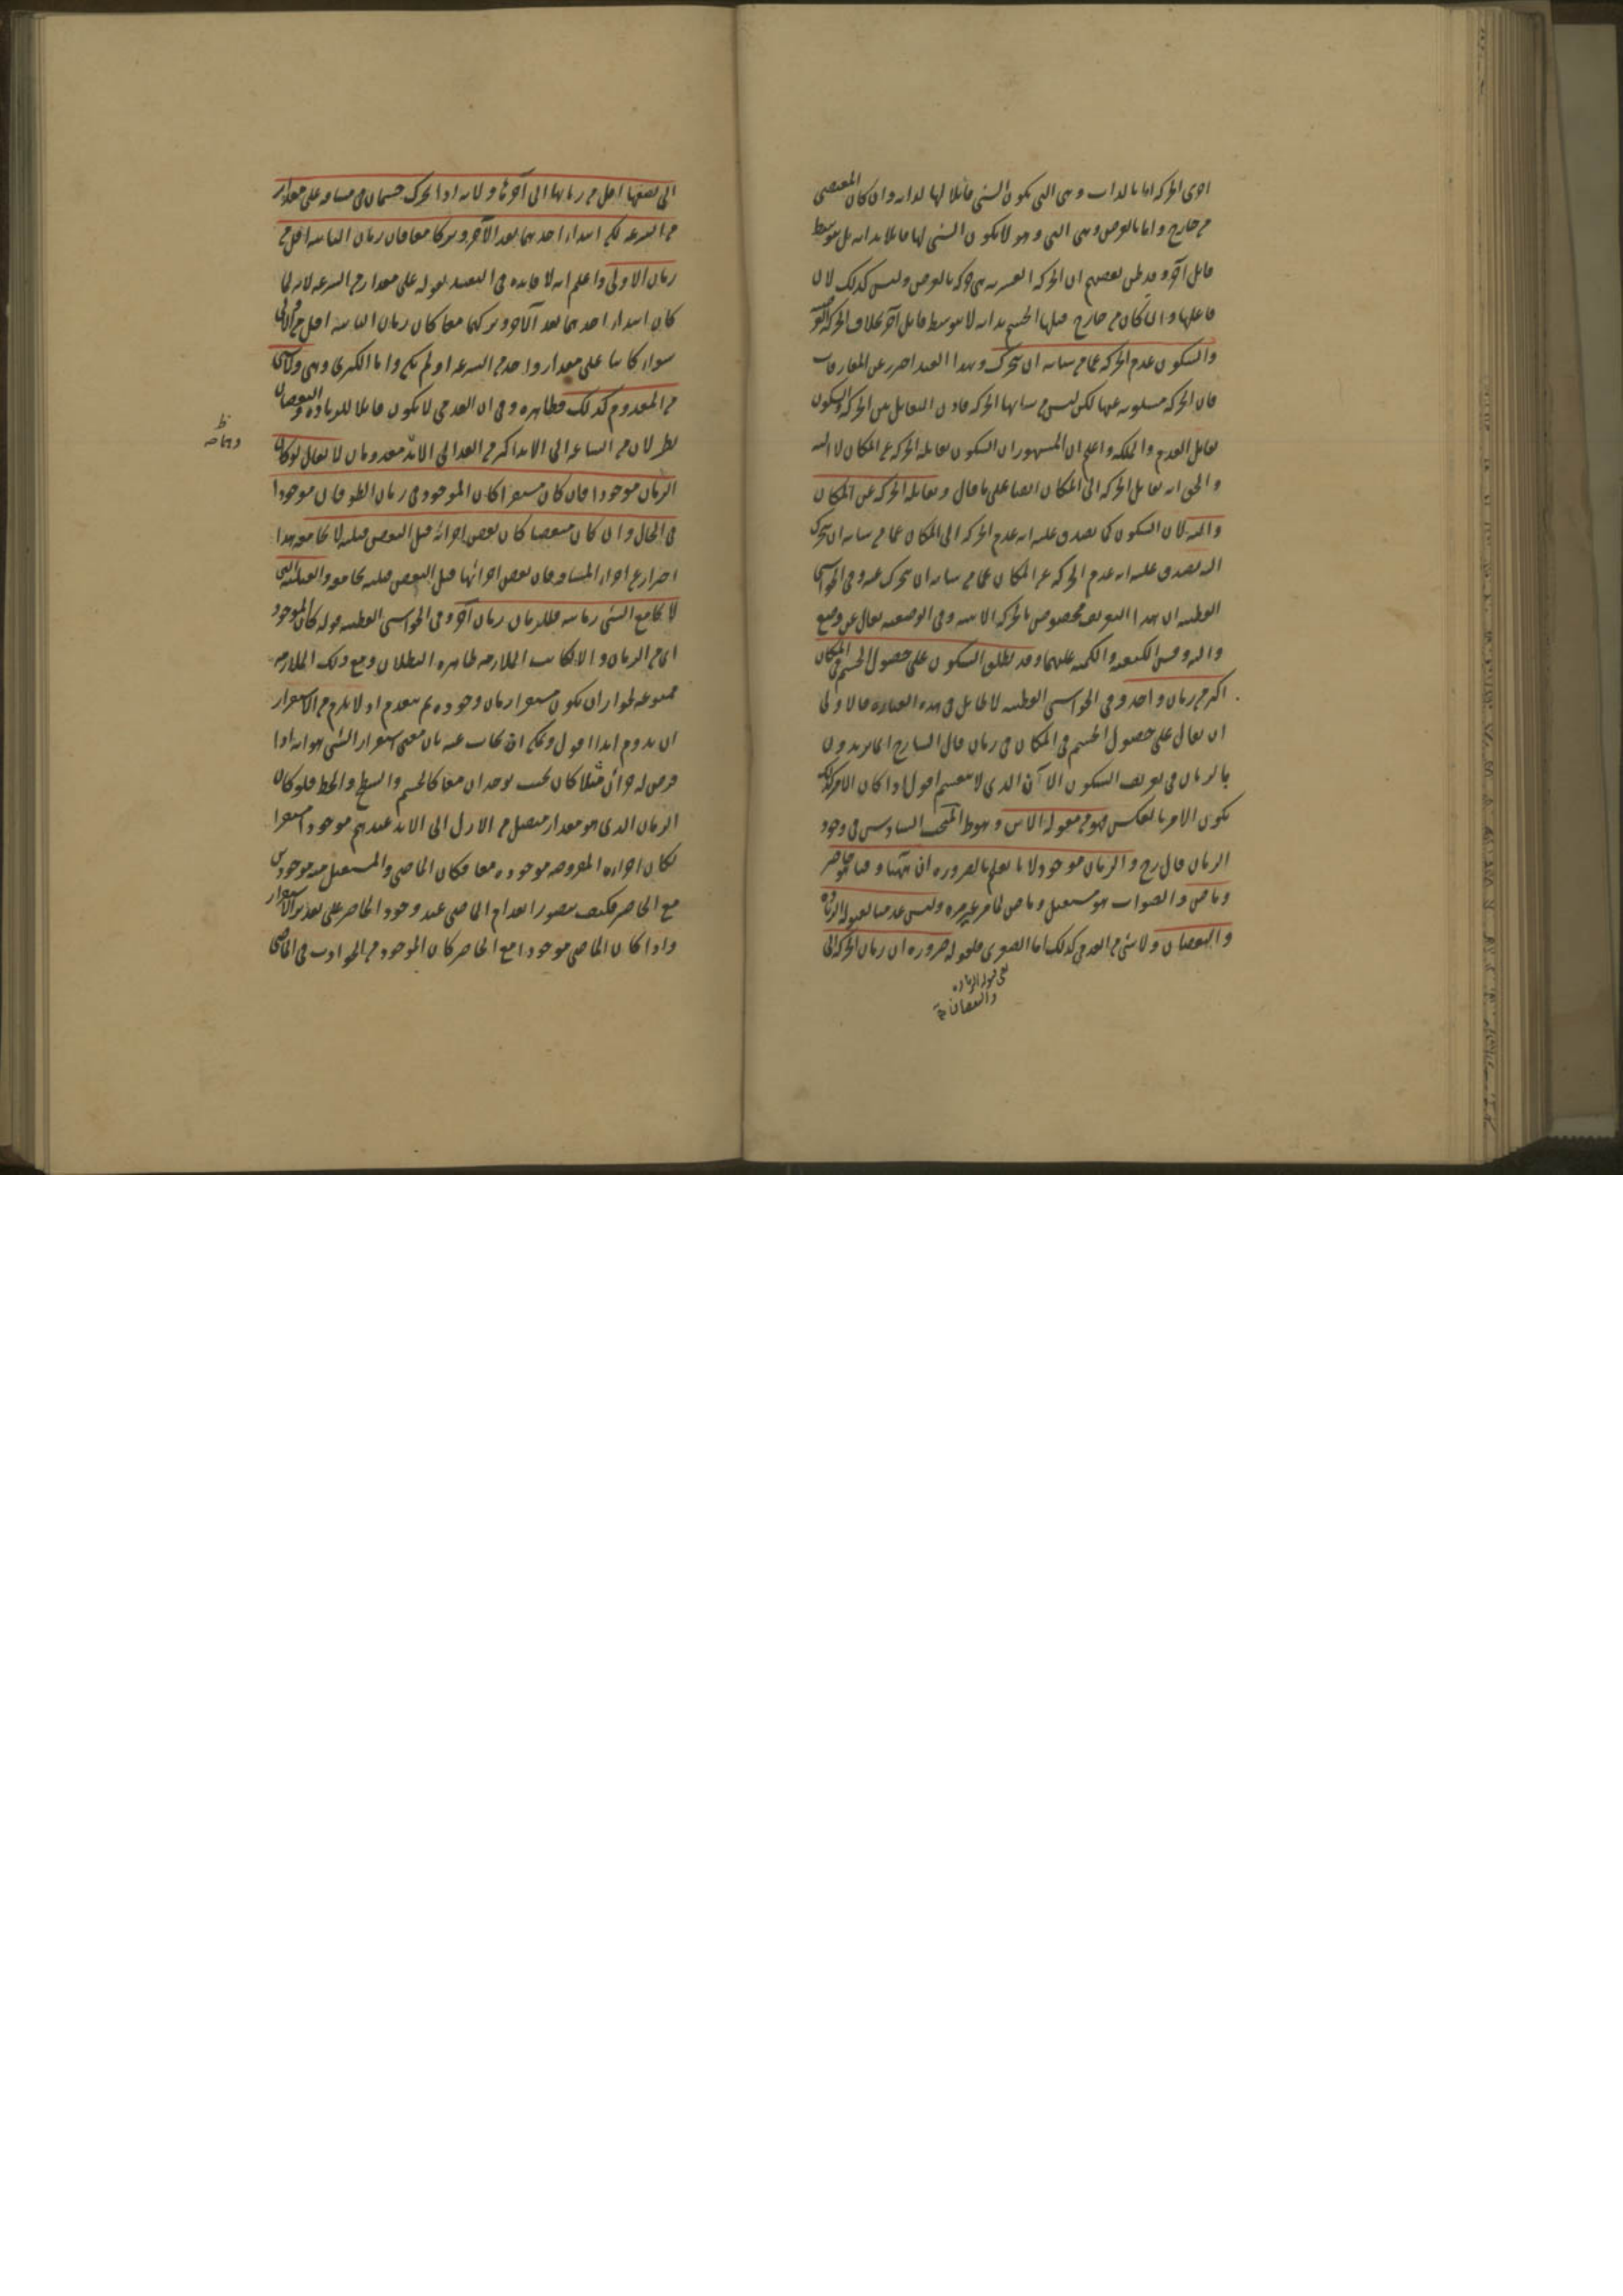 اخرى الحركة اما بالذات وهى التى يكون الشئ قابلا لها لذاته وان كان المقتضى
من خارج واما بالعرض وهى التى وهو لا يكون الشئ لها قابلا بذاته بل بتوسط
قابل آخر وقد ظن بعضهم ان الحركة القسرية هى حركة بالعرض وليس كذلك لان
فاعلها وان كان من خارج قبلها الجسم بذاته لا بتوسط قابل آخر بخلاف الحركة
والسكون عدم الحركة عما من شانه ان يتحرك وبهذا القيد احترز عن المفارقات
فان الحركة مسلوبة عنها لكن ليس من شانها الحركة فاذن التقابل بين الحركة والسكون
تقابل العدم والملكة واعلم ان المشهور ان السكون تقابله الحركة عن المكان لا اليه
والحق انه تقابل الحركة الى المكان ايضا على ما قال وتقابله الحركة عن المكان
واليه لان السكون كما يصدق عليه انه عدم الحركة الى المكان عما من شانه ان يتحرك
اليه يصدق عليه انه عدم الحركة عن المكان عما من شانه ان يتحرك عنه وفى الحواشى
القطبية ان هذا التعريف مخصوص بالحركة الاينية وفى الوضعية يقال عن وضع
واليه وقس الكيفية والكمية عليهما وقد يطلق السكون على حصول الجسم فى المكان
اكثر من زمان واحد وفى الحواشى القطبية لا طايل فى هذه العبارة فالاولى
ان يقال على حصول الجسم فى المكان فى زمان قال الشارح انما يريدون
بالزمان فى تعريف السكون الآن الذى لا ينقسم اقول اذا كان الامر كذلك
يكون الامر بالعكس فهو من مقولة الاين وهو ط المبحث السادس فى وجود
الزمان قال رح والزمان موجود لانا نعلم بالضرورة ان ههنا وقتا هو حاضر
وماض والصواب هو مستقبل وماض لما مر غير مرة وليس عدميا لقبوله الزيادة
والنقصان ولا شئ من العدمى كذلك اما الصغرى فلقوله ضرورة ان زمان الحركة الى
نعنى قبوله الزيادة
والنقصان
الى نصفها اقل من زمانها الى آخرها ولانه اذا تحرك جسمان فى مسافة على مقدار
من السرعة لكن ابتداء احدهما بعد الآخر وتركا معا فان زمان الثانية اقل من
زمان الاولى واعلم انه لا فايدة فى التقييد بقوله على مقدار من السرعة لانه لما
كان ابتداء احدهما بعد الآخر وتركهما معا كان زمان الثانية اقل من الاولى
سواء كانتا على مقدار واحد من السرعة او لم يكن واما الكبرى وهى ولا شئ
من المعدوم كذلك فظاهرة وفى ان العدمى لا يكون قابلا للزيادة والنقصان
نظر لان من الساعة الى الابد اكثر من الغد الى الابد معدومان لا يقال لو كان
الزمان موجودا فان كان مستقرا كان الموجود فى زمان الطوفان موجودا
فى الحال وان كان متقضيا كان بعض اجزائه قبل البعض قبلية لا تجامع هذا
احتراز عن اجزاء المسافة فان بعض اجزائها قبل البعض قبلية تجامع والقبلية التى
لا تجامع الشئ زمانية فللزمان زمان آخر وفى الحواشى القطبية قوله كان الموجود
اى من الزمان والا لكانت الملازمة ظاهرة البطلان ومع ذلك الملازمة
ممنوعة لجواز ان يكون مستقرا زمان وجوده ثم ينعدم اذ لا يلزم من الاستقرار
ان يدوم ابدا اقول ويمكن ان يجاب عنه بان معنى استقرار الشئ هو انه اذا
فرض له جزآن مثلا كان بحيث يوجدان معا كالجسم والسطح والخط فلو كان
الزمان الذى هو مقدار متصل من الازل الى الابد عندهم موجودا مستقرا
لكان اجزاؤه المفروضة موجودة معا فكان الماضى والمستقبل منه موجودين
مع الحاضر فكيف يتصور انعدام الماضى عند وجود الحاضر على تقدير الاستقرار
واذا كان الماضى موجودا مع الحاضر كان الموجود من الحوادث فى الماضى